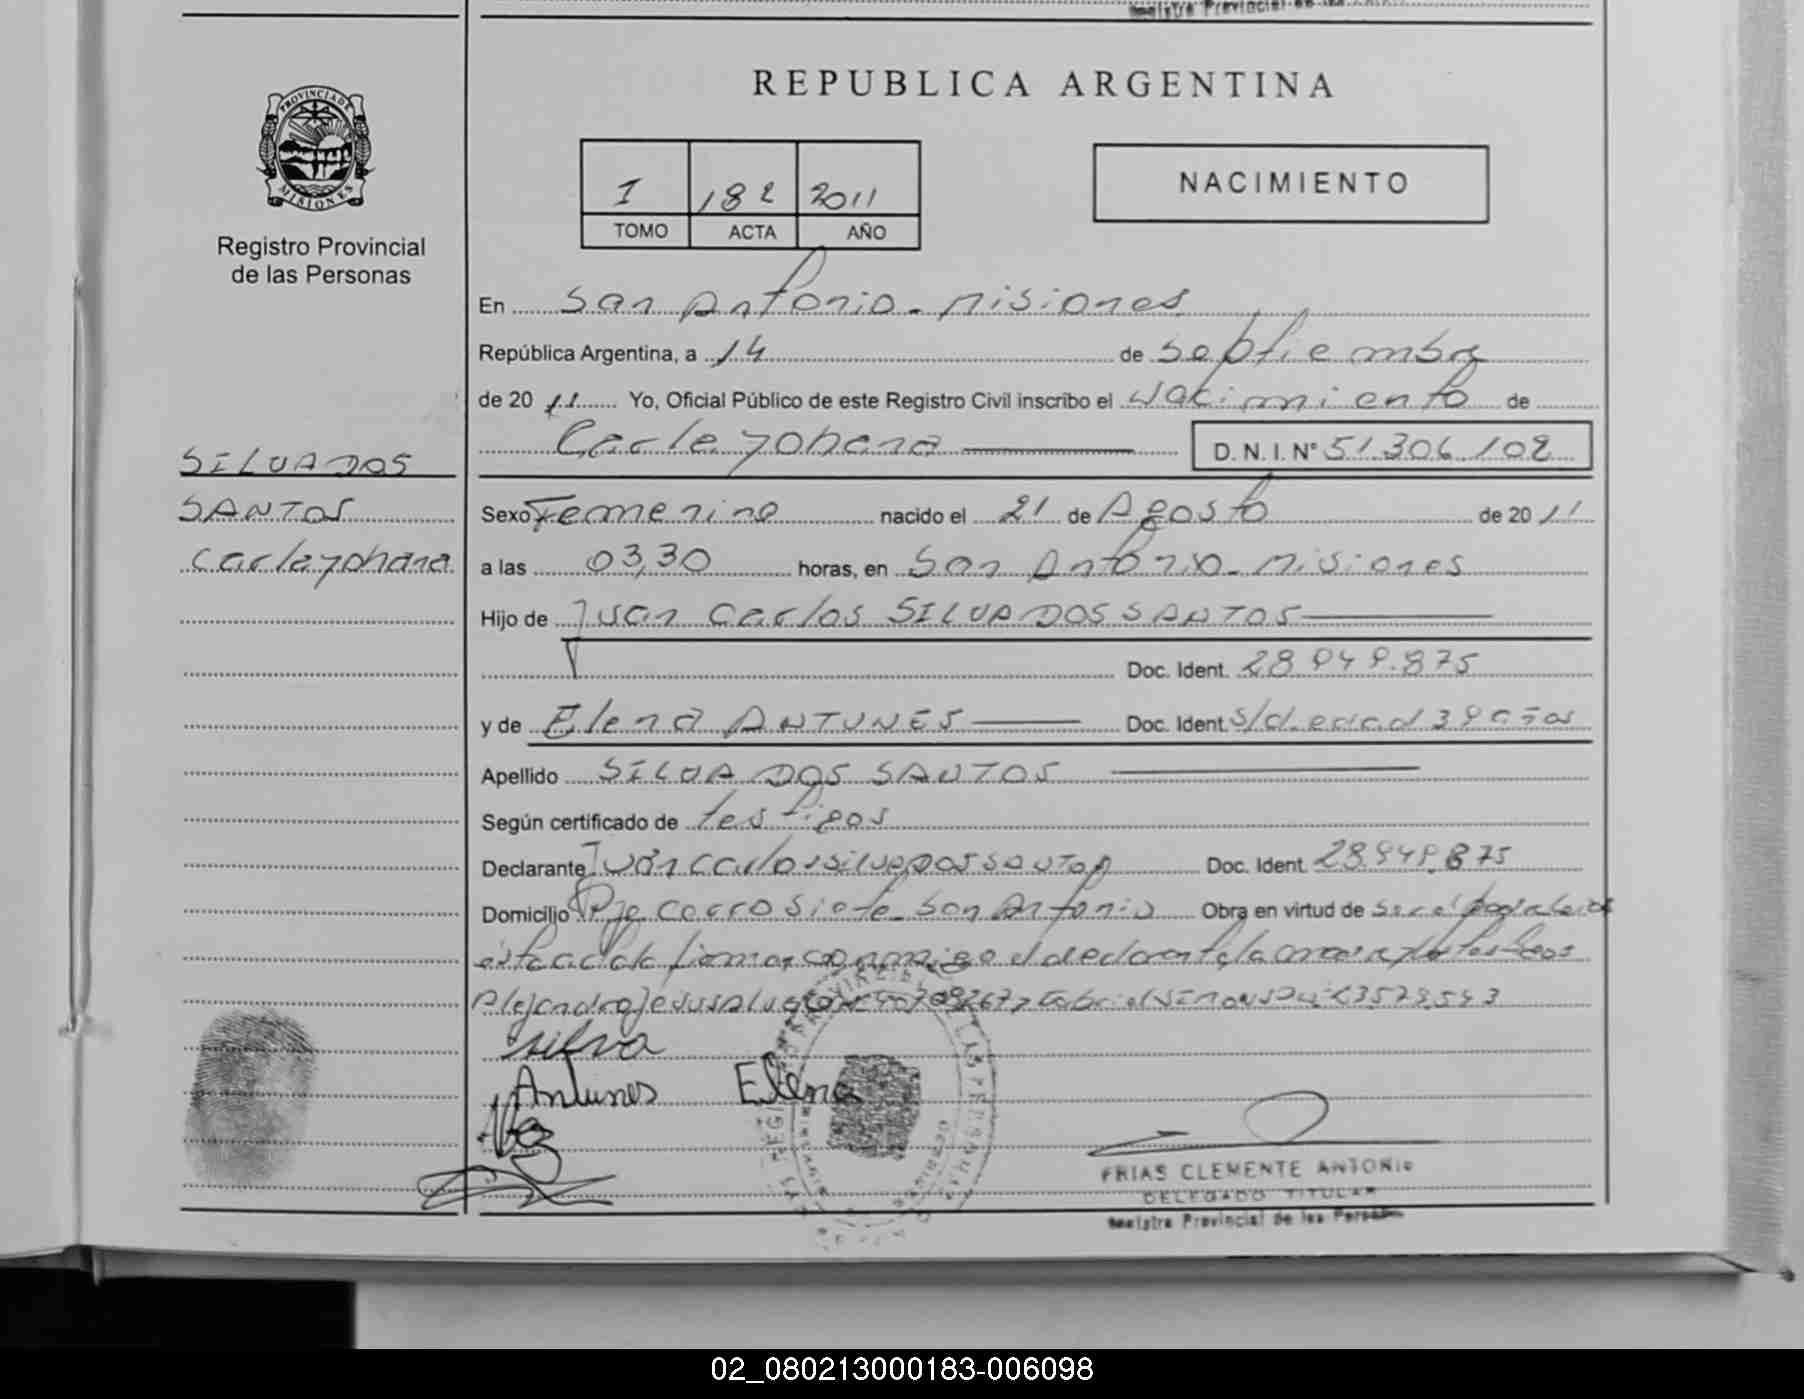 REPUBLICA ARGENTINA
PROVINCIA DE
MISIONES
Registro Provincial
de las Personas
I 182 2011
TOMO ACTA AÑO
NACIMIENTO
En San Antonio - Misiones
República Argentina, a 14 de Septiembre
de 20 11 Yo, Oficial Público de este Registro Civil inscribo el Nacimiento de
Carleyohana D. N. I. N° 51.306.102
SILVA DOS
SANTOS
Carleyohana
Sexo Femenino nacido el 21 de Agosto de 20 11
a las 03,30 horas, en San Antonio - Misiones
Hijo de Juan Carlos SILVA DOS SANTOS
Doc. Ident. 28.949.875
y de Elena ANTUNES Doc. Ident. S/d. edad 39 años
Apellido SILVA DOS SANTOS
Según certificado de testigos
Declarante Juan Carlos SILVA DOS SANTOS Doc. Ident. 28.949.875
Domicilio Pje Cerro Siete - San Antonio Obra en virtud de ser el
firman conmigo el declarante, la
Alejandro Jesus
Silva
Antunes Elena
FRIAS CLEMENTE ANTONIO
DELEGADO TITULAR
Registro Provincial de las Personas
02_080213000183-006098